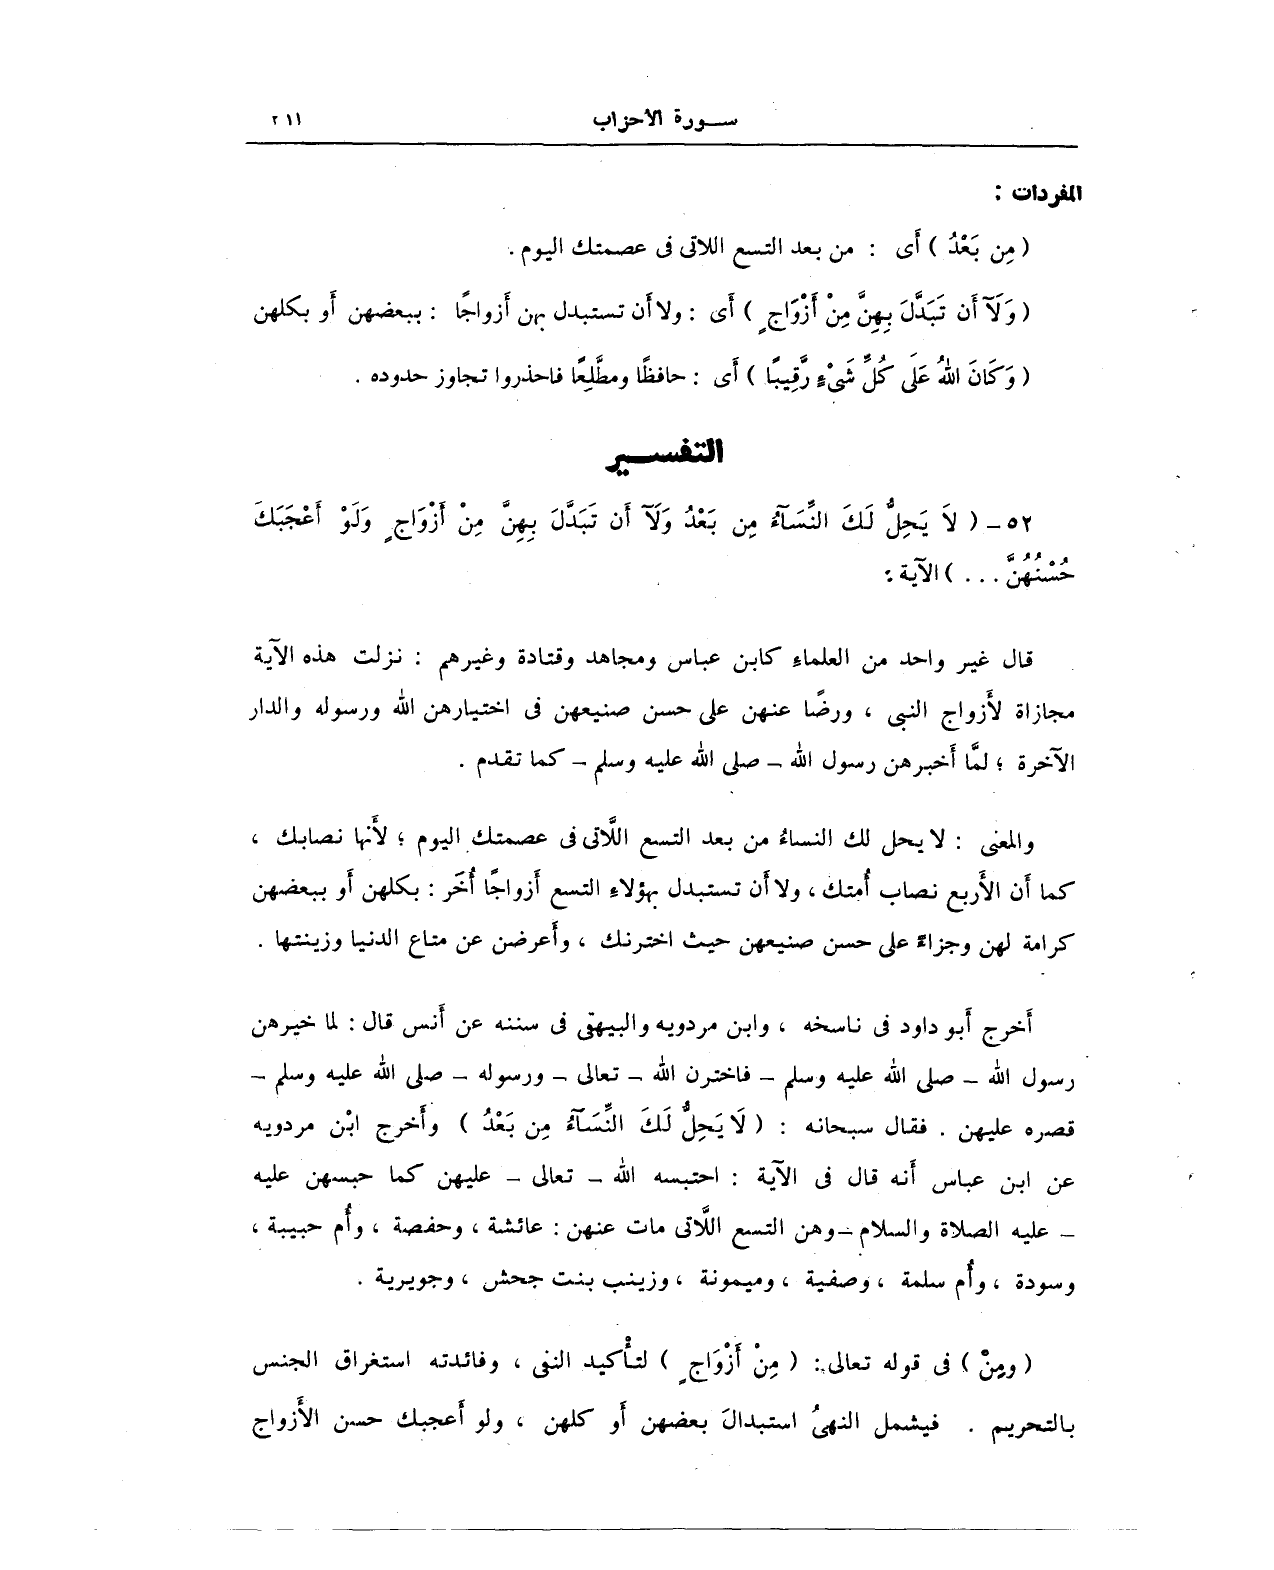 ســورة الأحزاب ٢١١
المفردات :
( مِن بَعْدُ ) أَى : من بعد التسع اللاتى فى عصمتك اليوم .
( وَلَآ أَن تَبَدَّلَ بِهِنَّ مِنْ أَزْوَاجٍ ) أَى : ولا أن تستبدل بهن أزواجًا : ببعضهن أو بكلهن
( وَكَانَ اللهُ عَلَى كُلِّ شَىْءٍ رَّقِيبًا ) أَى : حافظًا ومطَّلِعًا فاحذروا تجاوز حدوده .
التفســير
٥٢ - ( لَا يَحِلُّ لَكَ النِّسَآءُ مِن بَعْدُ وَلَآ أَن تَبَدَّلَ بِهِنَّ مِنْ أَزْوَاجٍ وَلَوْ أَعْجَبَكَ
حُسْنُهُنَّ ... ) الآية :
قال غير واحد من العلماء كابن عباس ومجاهد وقتادة وغيرهم : نزلت هذه الآية
مجازاة لأزواج النبى ، ورضًا عنهن على حسن صنيعهن فى اختيارهن الله ورسوله والدار
الآخرة ؛ لمَّا أخبرهن رسول الله - صلى الله عليه وسلم - كما تقدم .
والمعنى : لا يحل لك النساءُ من بعد التسع اللَّاتى فى عصمتك اليوم ؛ لأَنها نصابك ،
كما أن الأَربع نصاب أُمتك ، ولا أن تستبدل بهؤلاء التسع أزواجًا أُخَر : بكلهن أو ببعضهن
كرامة لهن وجزاءً على حسن صنيعهن حيث اخترنك ، وأَعرضن عن متاع الدنيا وزينتها .
أَخرج أَبو داود فى ناسخه ، وابن مردويه والبيهقى فى سننه عن أَنس قال : لما خيرهن
رسول الله - صلى الله عليه وسلم - فاخترن الله - تعالى - ورسوله - صلى الله عليه وسلم -
قصره عليهن . فقال سبحانه : ( لَا يَحِلُّ لَكَ النِّسَآءُ مِن بَعْدُ ) وأَخرج ابْن مردويه
عن ابن عباس أَنه قال فى الآية : احتبسه الله - تعالى - عليهن كما حبسهن عليه
- عليه الصلاة والسلام - وهن التسع اللَّاتى مات عنهن : عائشة ، وحفصة ، وأُم حبيبة ،
وسودة ، وأُم سلمة ، وصفية ، وميمونة ، وزينب بنت جحش ، وجويرية .
( ومِنْ ) فى قوله تعالى : ( مِنْ أَزْوَاجٍ ) لتأْكيد النفى ، وفائدته استغراق الجنس
بالتحريم . فيشمل النهىُ استبدالَ بعضهن أَو كلهن ، ولو أَعجبك حسن الأَزواج